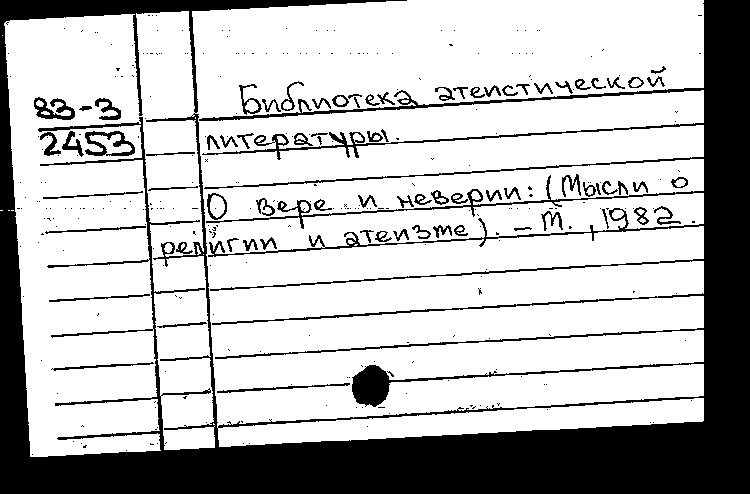 83-3
2453
Библиотека атеистической
литературы.
О вере и неверии: (Мысли о
религии и атеизме). – М., 1982.